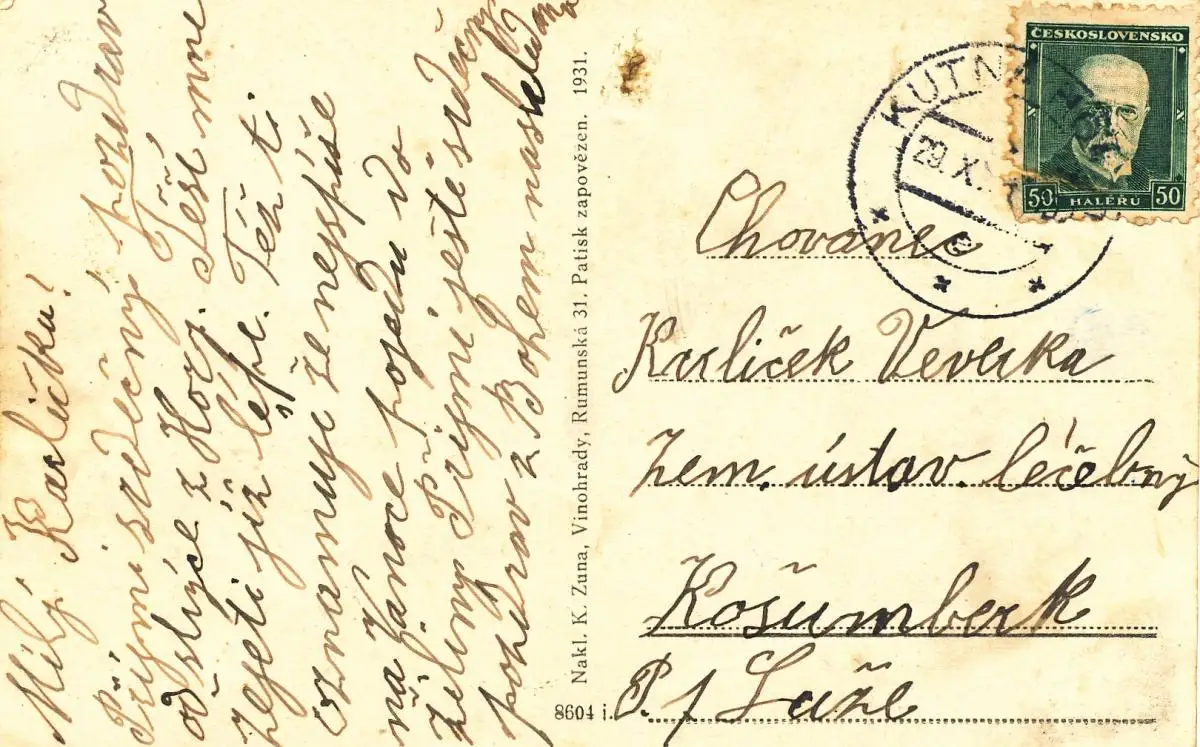 Milý Karlíčku!
Přijmi srdečný pozdrav
od strýce z Hory. Těší mne
že je ti již lépe. Též ti
oznamuje že nejspíše
na Vánoce pojedu do
Želiny. Přijmi ještě srdečný
pozdrav z Bohem naschledanou
Nakl. K. Zuna, Vinohrady, Rumunská 31. Patisk zapovězen. 1931.
8604 i.
ČESKOSLOVENSKO
50 HALÉŘŮ 50
KUTNÁ
29. X
Chovanec
Karlíček Veverka
Zem. ústav. léčebný
Košumberk
P. / Luže